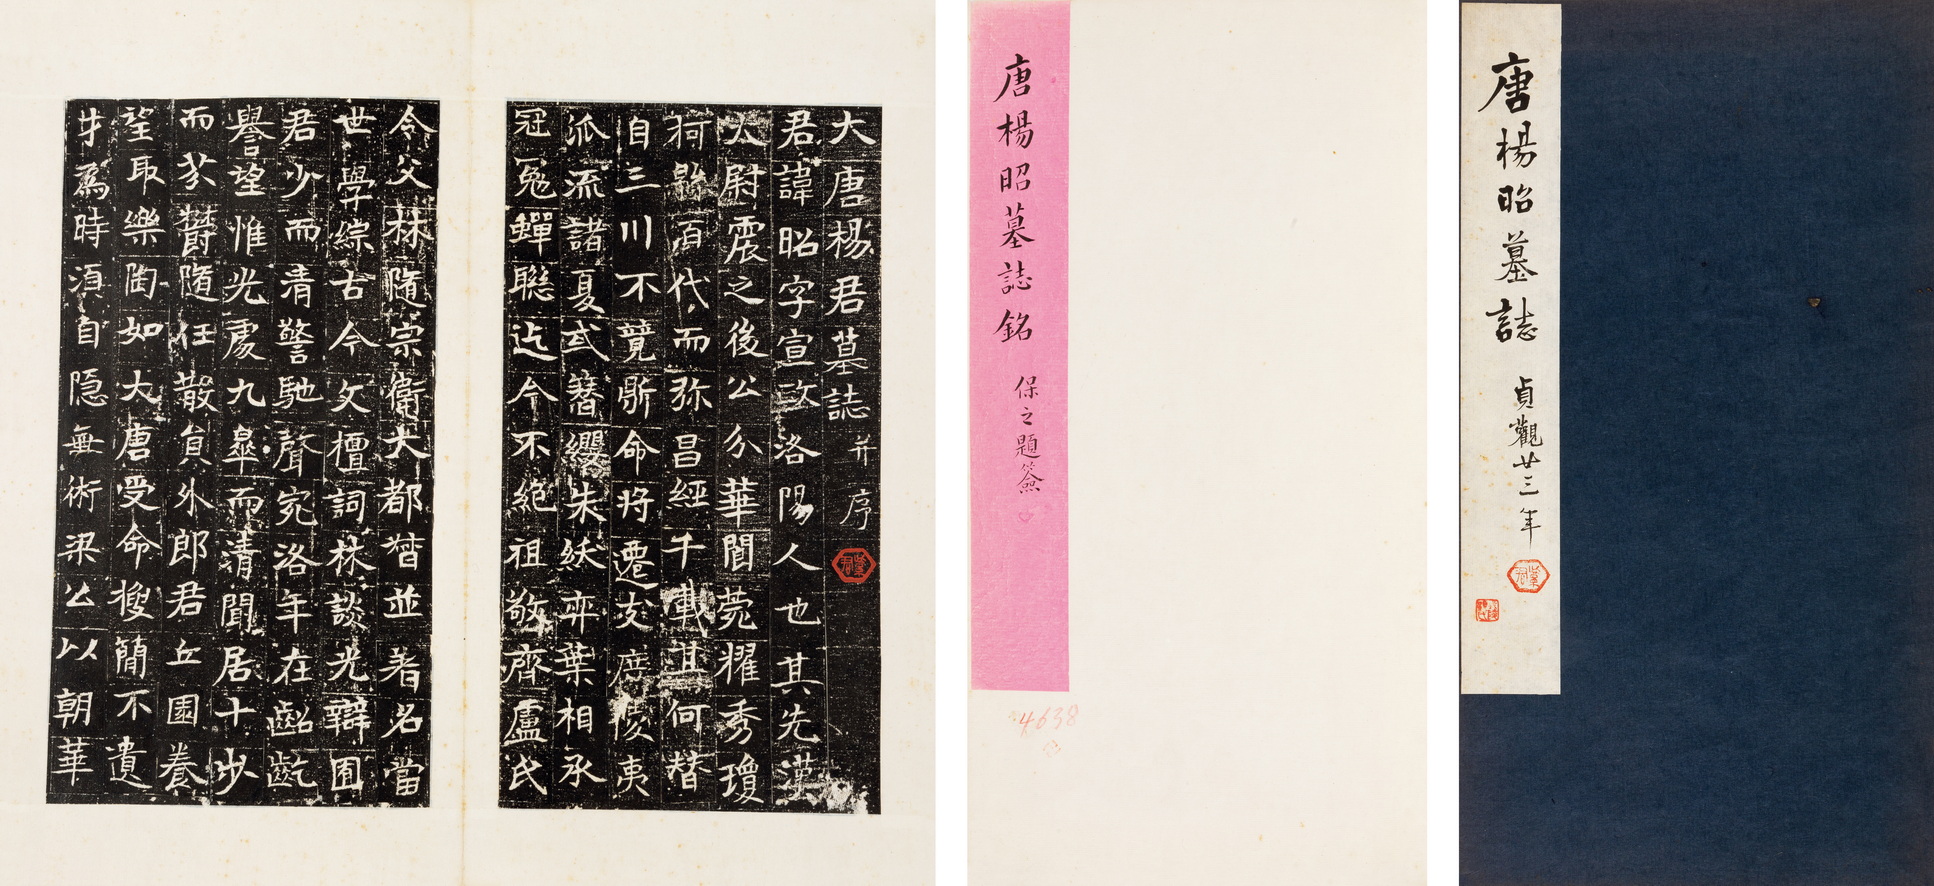 大唐楊君墓誌并序
君諱昭字宣政洛陽人也其先漢
太尉震之後公分華閥菀耀秀瓊
柯百代而弥昌經千載其何替
自三川不競斯命將遷岐夷
派流諸夏式簪纓朱紱弈葉相承
冠冕蟬聯迄今不絕祖敬齊盧氏
令父林隨宗衛大都督並著名當
世學綜古今文檀詞林談光辯囿
君少而清警馳聲宛洛年在齠齔
譽望惟光處九皋而清聞居十步
而芬欝隨任散員外郎君丘園養
望取樂陶如大唐受命搜簡不遺
才為時湏自隐無術梁公以朝華
唐楊昭墓誌銘
保之題簽
4638
唐楊昭墓誌
貞觀廿三年